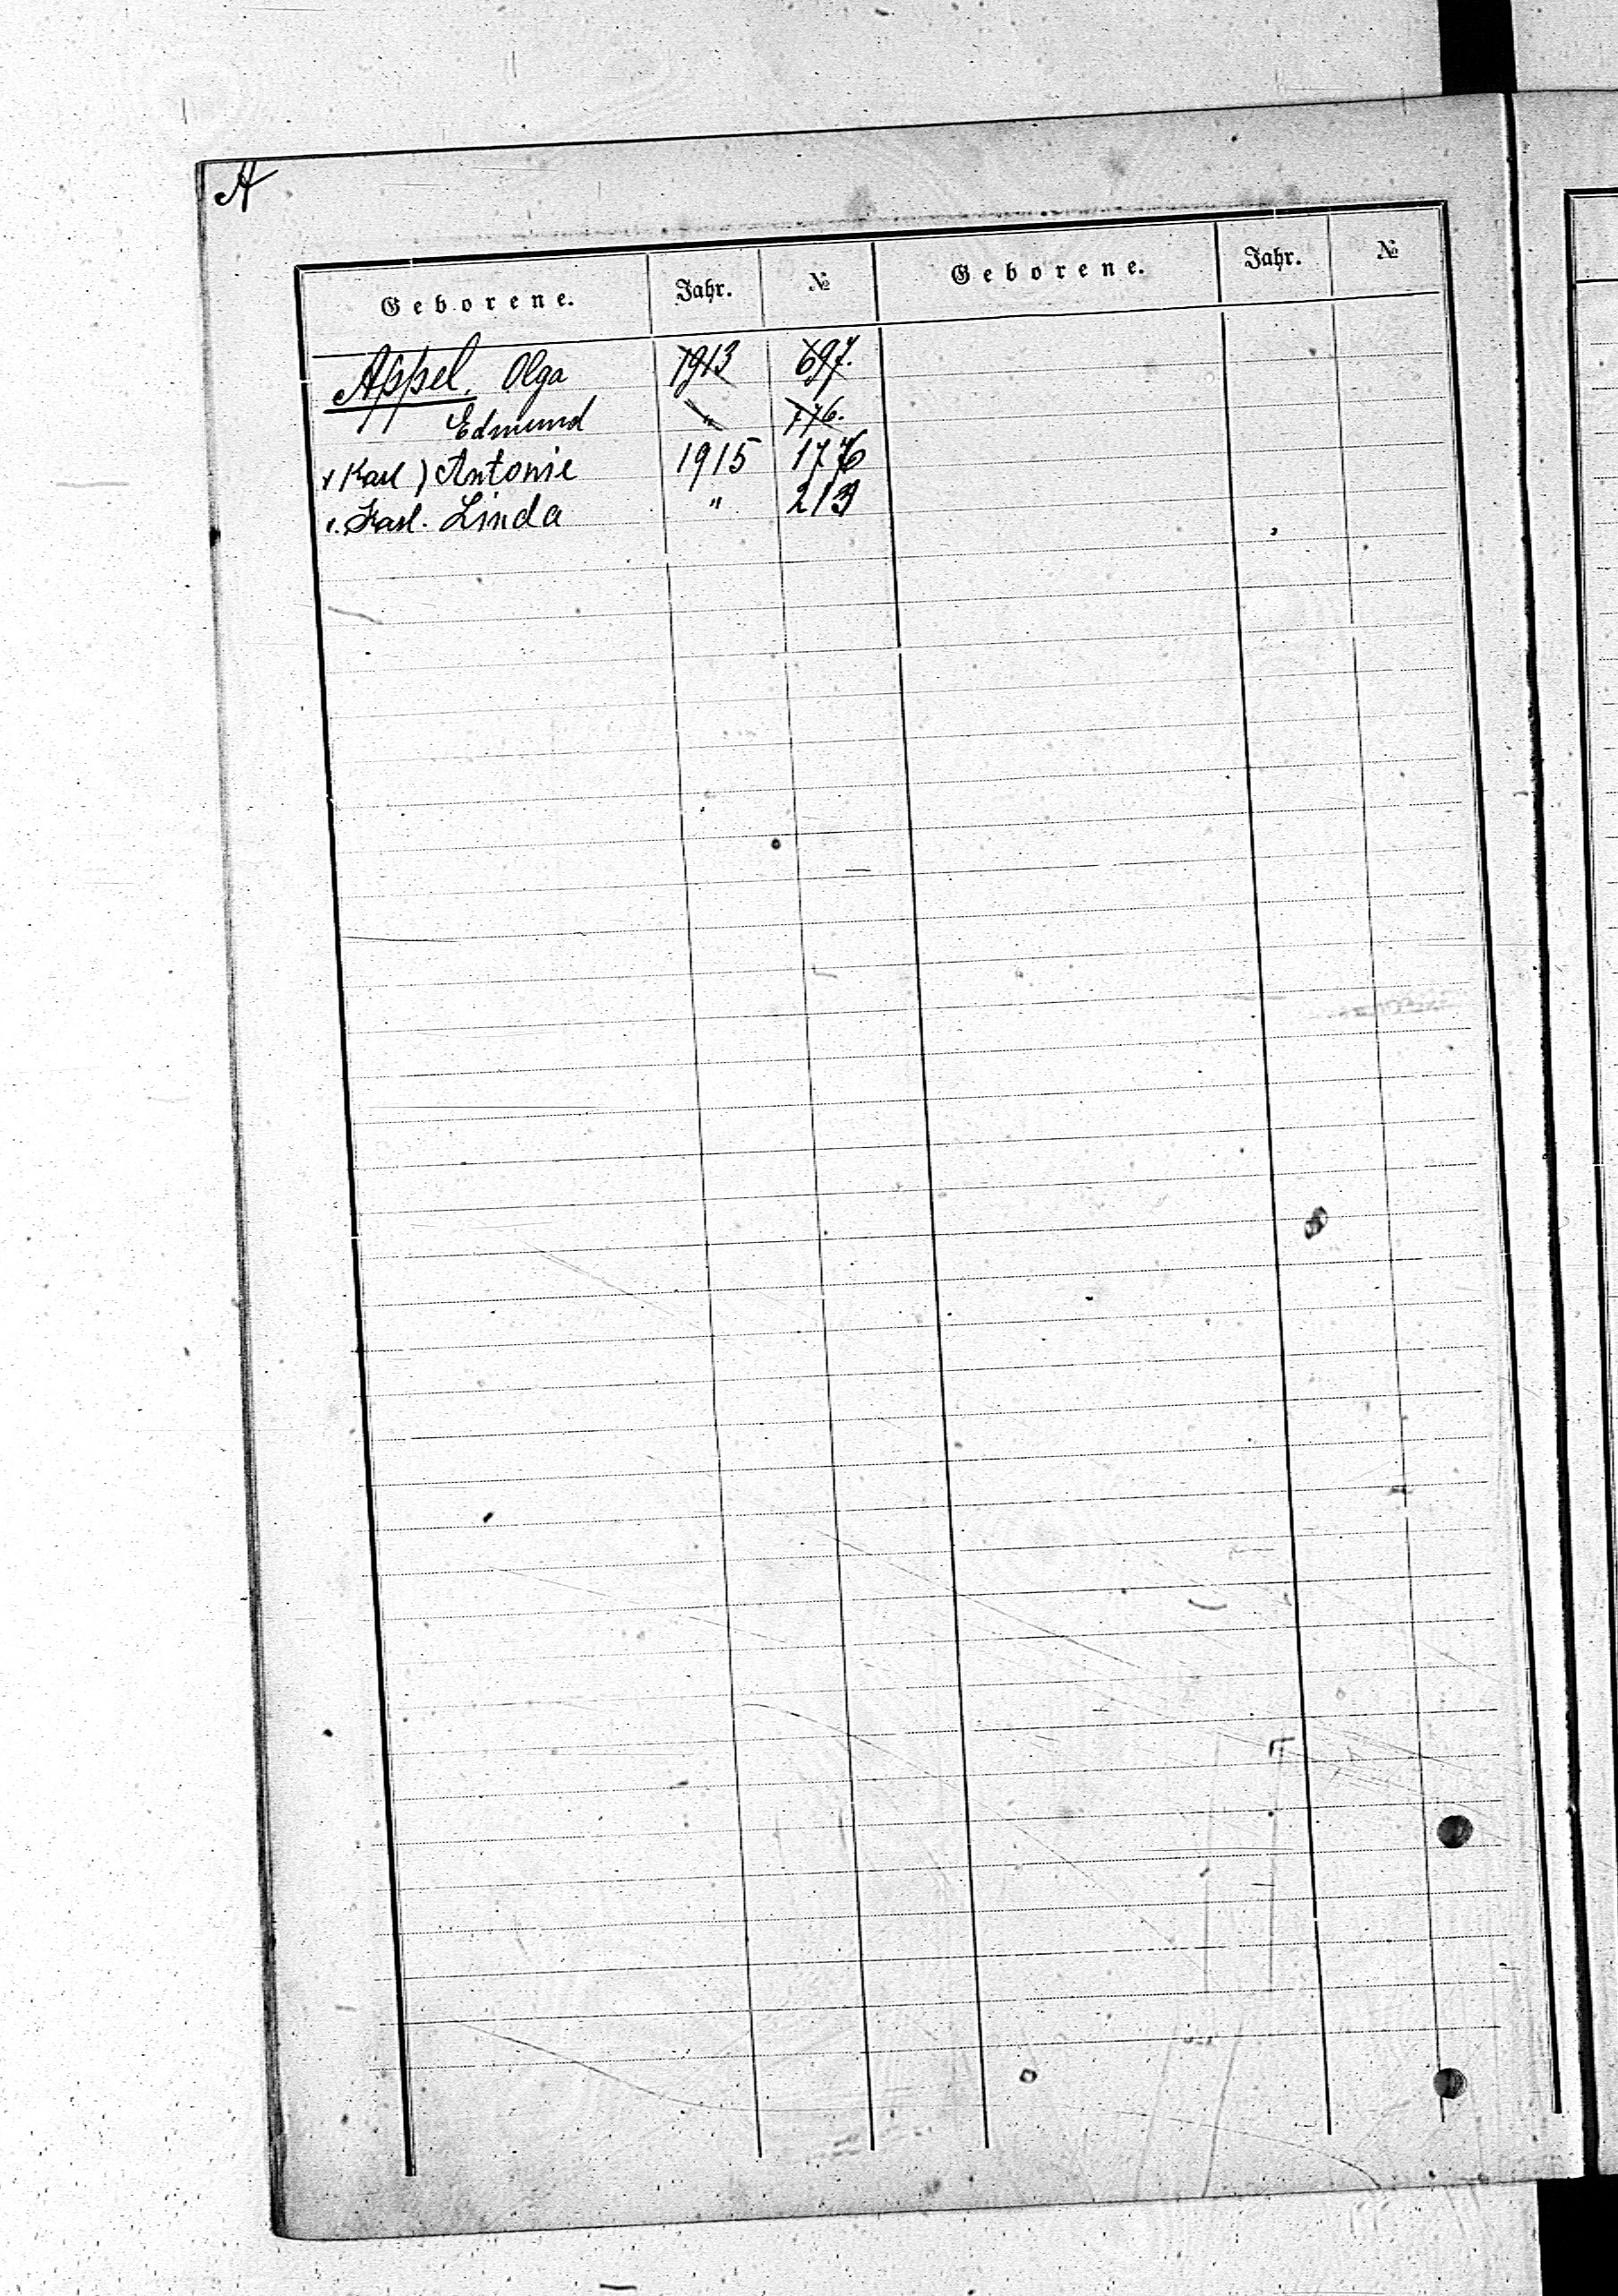 A
Geborene. Jahr. № Geborene. Jahr. №
Appel. Olga 1913 697.
Edmund " 776.
v Karl) Antonie 1915 176
v. Karl. Linda " 213